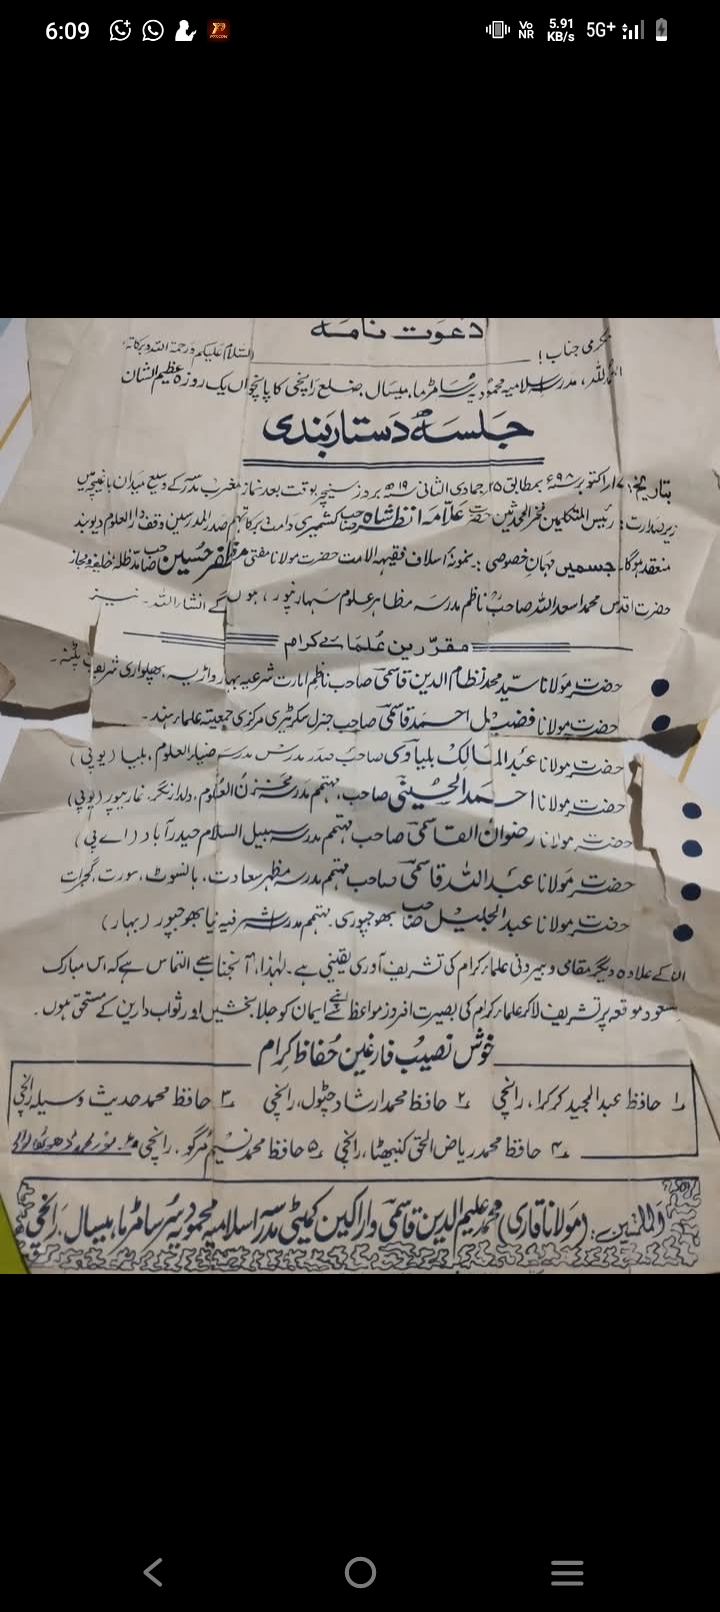 6:09
Vo NR 5.91 KB/s 5G+
دعوت نامہ
مکرمی جناب! السلام علیکم ورحمۃ اللہ وبرکاتہ
الحمد للہ، مدرسہ اسلامیہ محمودیہ سرسا مڑما، میسال، ضلع رانچی کا پانچواں یک روزہ عظیم الشان
جلسۂ دستار بندی
بتاریخ ۱۷ اکتوبر ۹۸ء بمطابق ۲۵ جمادی الثانی ۱۹ھ بروز سنیچر بوقت بعد نماز مغرب مدرسہ کے وسیع میدان باغیچہ میں
زیر صدارت: رئیس المتکلمین فخر المحدثین حضرت علامہ انظر شاہ صاحب کشمیری دامت برکاتہم صدر المدرسین وقف دار العلوم دیوبند
منعقد ہوگا۔ جسمیں مہمان خصوصی: نمونۂ اسلاف فقیہہ الامت حضرت مولانا مفتی مظفر حسین صاحب مدظلہ خلیفہ و مجاز
حضرت اقدس محمد اسعد اللہ صاحبؒ ناظم مدرسہ مظاہر علوم سہارنپور، ہوں گے انشاء اللہ۔ نیز
مقررین علمائے کرام
حضرت مولانا سید محمد نظام الدین قاسمی صاحب ناظم امارت شرعیہ بہار واڑیسہ، پھلواری شریف پٹنہ۔
حضرت مولانا فضیل احمد قاسمی صاحب جنرل سکریٹری مرکزی جمعیتہ علماء ہند۔
حضرت مولانا عبد المالک بلیاوی صاحب صدر مدرس مدرسہ ضیاء العلوم، بلیا (یوپی)
حضرت مولانا احمد الحسینی صاحب، مہتمم مدرسہ مخزن العلوم، دلدار نگر، غازیپور (یوپی)
حضرت مولانا رضوان القاسمی صاحب مہتمم مدرسہ سبیل السلام حیدرآباد (اے پی)
حضرت مولانا عبد اللہ قاسمی صاحب مہتمم مدرسہ مظہر سعادت، ہانسوٹ، سورت، گجرات
حضرت مولانا عبد الجلیل صاحب بھوجپوری، مہتمم مدرسہ اشرفیہ نیا بھوجپور (بہار)
ان کے علاوہ دیگر مقامی و بیرونی علماء کرام کی تشریف آوری یقینی ہے۔ لہٰذا، آنجناب سے التماس ہے کہ اس مبارک
مسعود موقعہ پر تشریف لا کر علماء کرام کی بصیرت افروز مواعظ سے اپنے ایمان کو جلا بخشیں اور ثواب دارین کے مستحق ہوں۔
خوش نصیب فارغین حفاظ کرام
۱۔ حافظ عبد المجید کرکرا، رانچی ۲۔ حافظ محمد ارشاد چٹول، رانچی ۳۔ حافظ محمد حدیث وسیلہ رانچی
۴۔ حافظ محمد ریاض الحق کنبھٹا، رانچی ۵۔ حافظ محمد نسیم مُرگو، رانچی
والملتمسین: (مولانا قاری) محمد علیم الدین قاسمی و اراکین کمیٹی مدرسہ اسلامیہ محمودیہ سرسا مڑما، میسال، رانچی